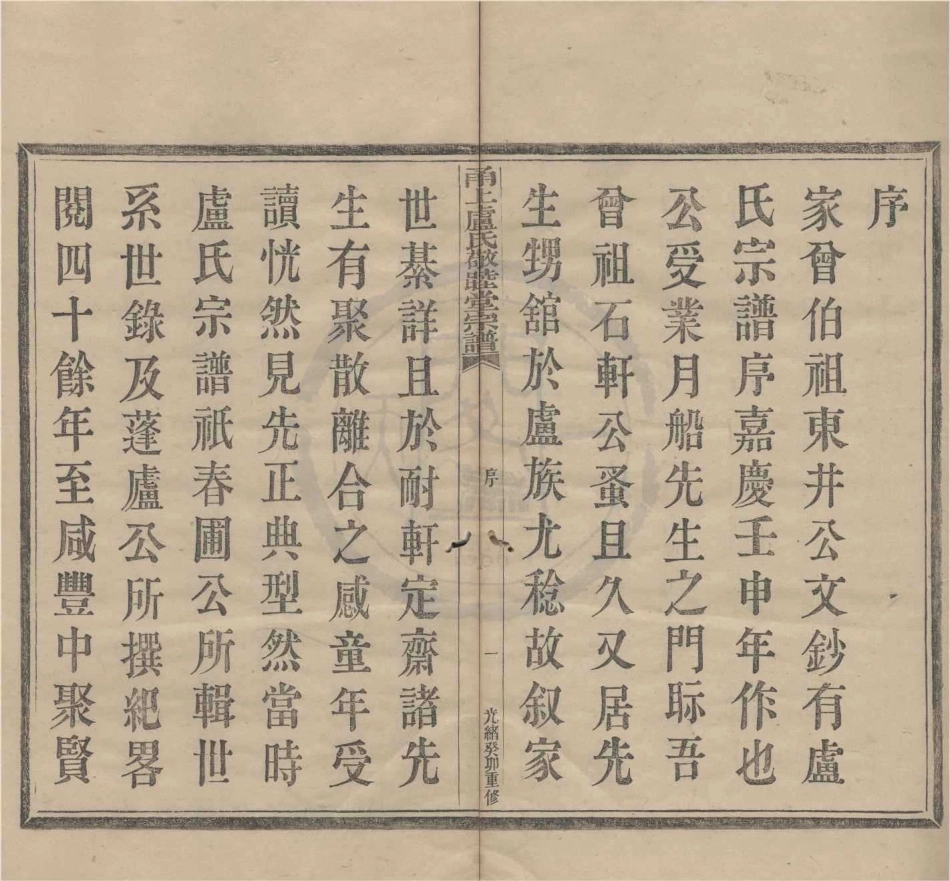 序
家曾伯祖東井公文鈔有盧
氏宗譜序嘉慶壬申年作也
公受業月船先生之門眎吾
曾祖石軒公蚤且久又居先
生甥舘於盧族尤稔故叙家
甬上盧氏敬睦堂宗譜
序
一
光緒癸卯重修
世綦詳且於耐軒定齋諸先
生有聚散離合之感童年受
讀恍然見先正典型然當時
盧氏宗譜祇春圃公所輯世
系世錄及蓬廬公所撰紀畧
閱四十餘年至咸豐中聚賢